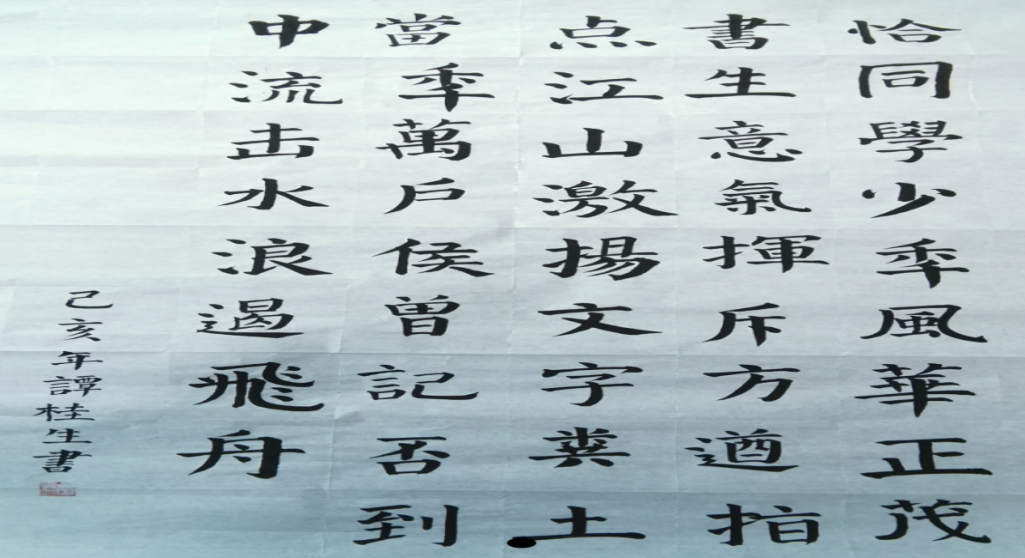 恰同學少秊風華正茂
書生意氣揮斥方遒指
点江山激揚文字糞土
當秊萬戶侯曾記否到
中流击水浪遏飛舟
己亥年譚桂生書